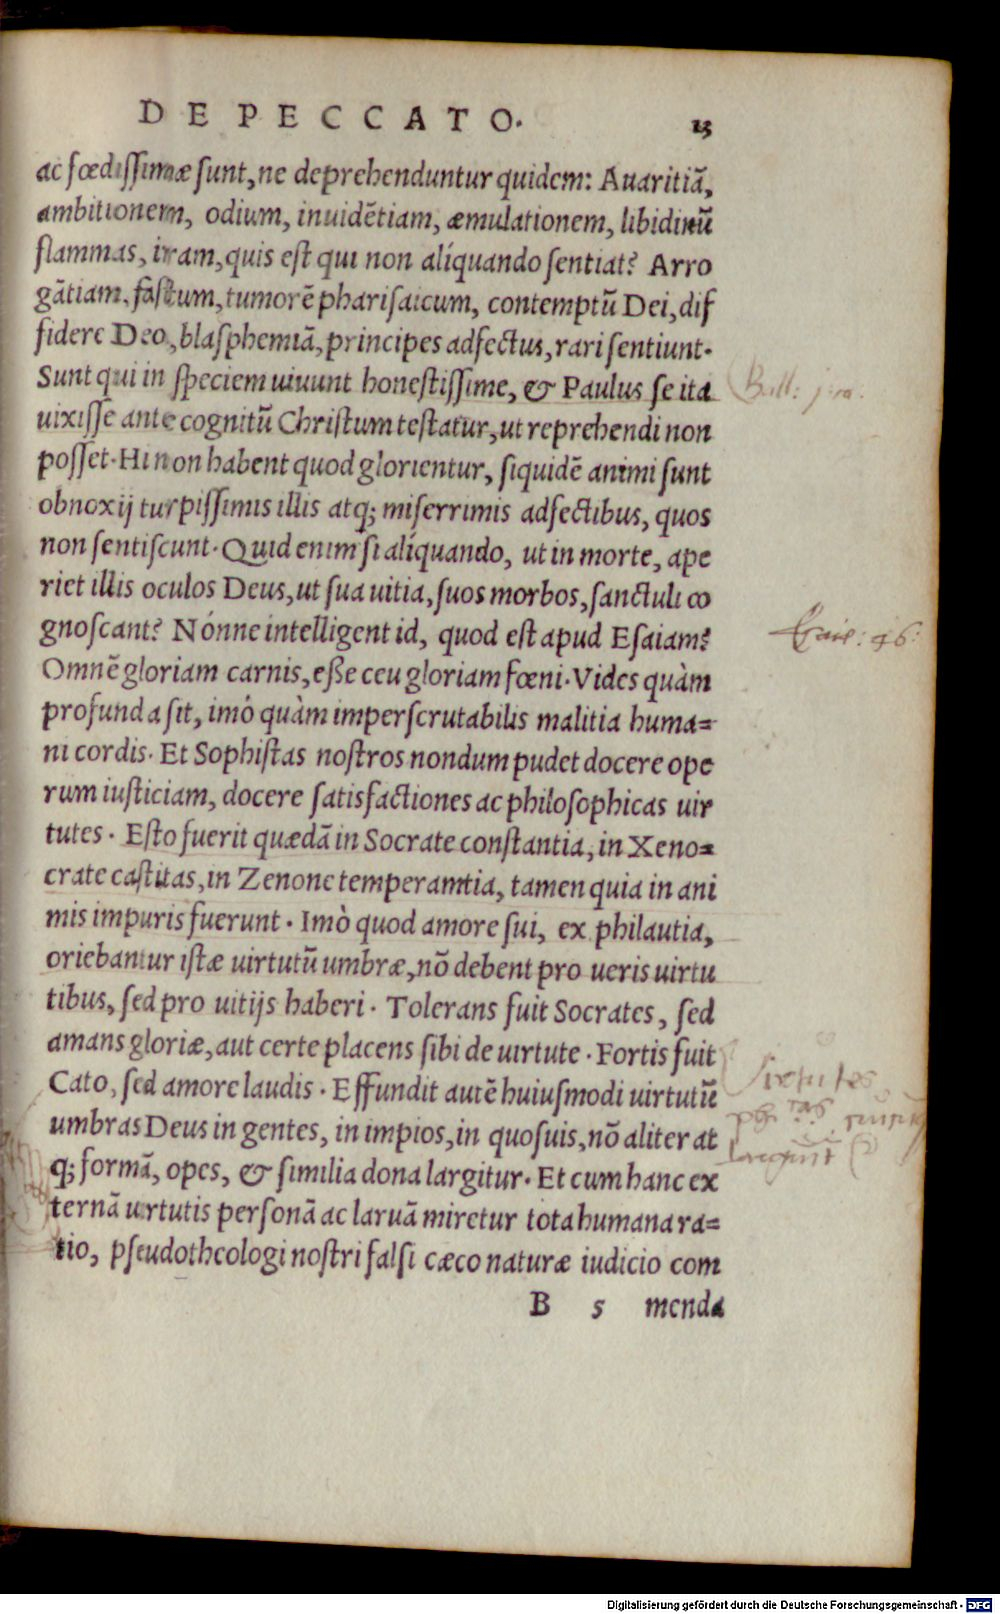 DE PECCATO. 13
ac fœdissimæ sunt, ne deprehenduntur quidem: Auaritiã,
ambitionem, odium, inuidẽtiam, æmulationem, libidinũ
flammas, iram, quis est qui non alíquando sentiat? Arro
gãtiam, fastum, tumorẽ pharisaicum, contemptũ Dei, dif
fidere Deo, blasphemiã, principes adfectus, rari sentiunt.
Sunt qui in speciem uiuunt honestissime, & Paulus se ita
uixisse ante cognitũ Christum testatur, ut reprehendi non
posset. Hi non habent quod glorientur, siquidẽ animi sunt
obnoxij turpissimis illis atq; miserrimis adfectibus, quos
non sentiscunt. Quid enim si alíquando, ut in morte, ape
riet illis oculos Deus, ut sua uitia, suos morbos, sanctuli co
gnoscant? Nónne intelligent id, quod est apud Esaiam?
Esaie: 46:
Omnẽ gloriam carnis, esse ceu gloriam fœni. Vides quàm
profunda sit, imò quàm imperscrutabilis malitia huma=
ni cordis. Et Sophistas nostros nondum pudet docere ope
rum iusticiam, docere satisfactiones ac philosophicas uir
tutes. Esto fuerit quædã in Socrate constantia, in Xeno=
crate castitas, in Zenone temperamtia, tamen quia in ani
mis impuris fuerunt. Imò quod amore sui, ex philautia,
oriebantur istæ uirtutũ umbræ, nõ debent pro ueris uirtu
tibus, sed pro uitijs haberi. Tolerans fuit Socrates, sed
amans gloriæ, aut certe placens sibi de uirtute. Fortis fuit
Cato, sed amore laudis. Effundit autẽ huiusmodi uirtutũ
Virtutes
umbras Deus in gentes, in impios, in quosuis, nõ aliter at
q; formã, opes, & similia dona largitur. Et cum hanc ex
ternã uirtutis personã ac laruã miretur tota humana ra=
tio, pseudotheologi nostri falsi cæco naturæ iudicio com
B 5 menda
Digitalisierung gefördert durch die Deutsche Forschungsgemeinschaft - DFG